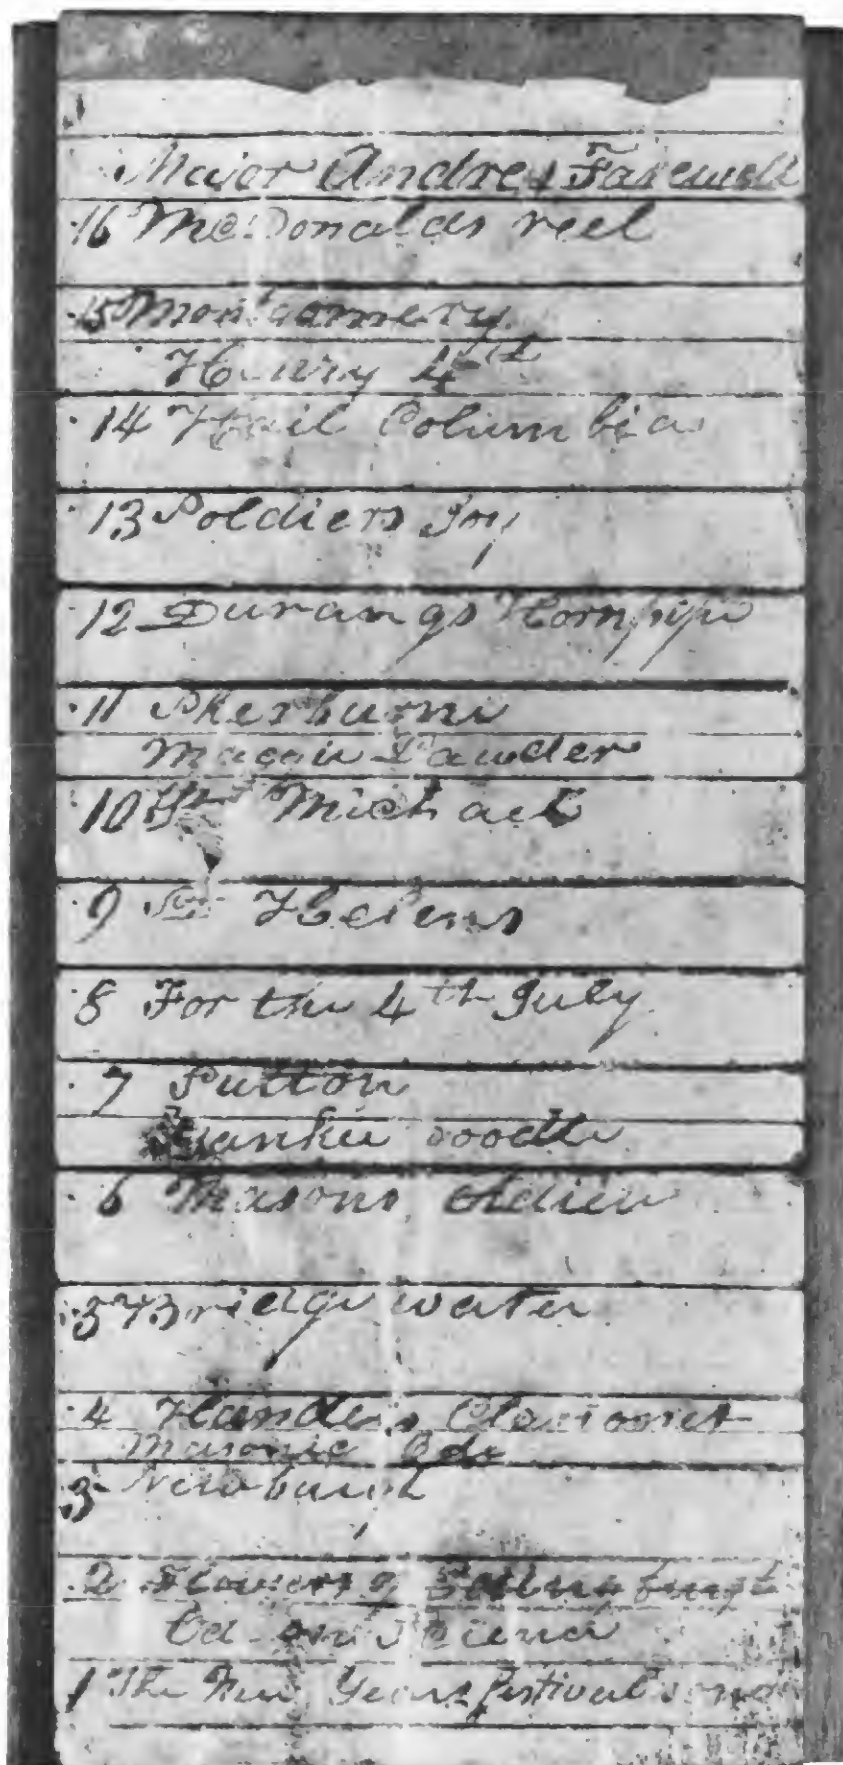 Major Andres Farewell
16 McDonalds reel
15 Montgomery
Henry 4th
14 Hail Columbia
13 Soldiers Joy
12 Durangs Hornpipe
11 Sherburne
Maggie Lawder
10 Michael
9 Helens
8 For the 4th July
7 Sutton
Yankee doodle
6 Masons Adieu
5 Bridgewater
4 Handels Clarionet
Masonic Ode
3 Newburgh
2 Flowers of
Ode on Science
1 The New Years festival song